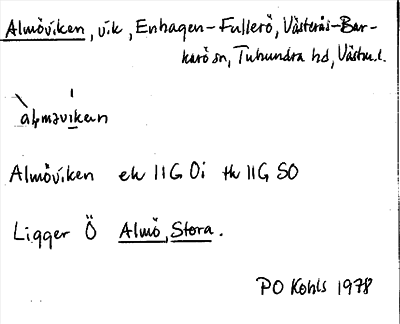 Almöviken, vik, Enhagen-Fullerö, Västerås-Bar-
karö sn, Tuhundra hd, Västm.l.
Almöviken ek 11G 0i tk 11G SO
Ligger Ö Almö, Stora.
PO Kohls 1978